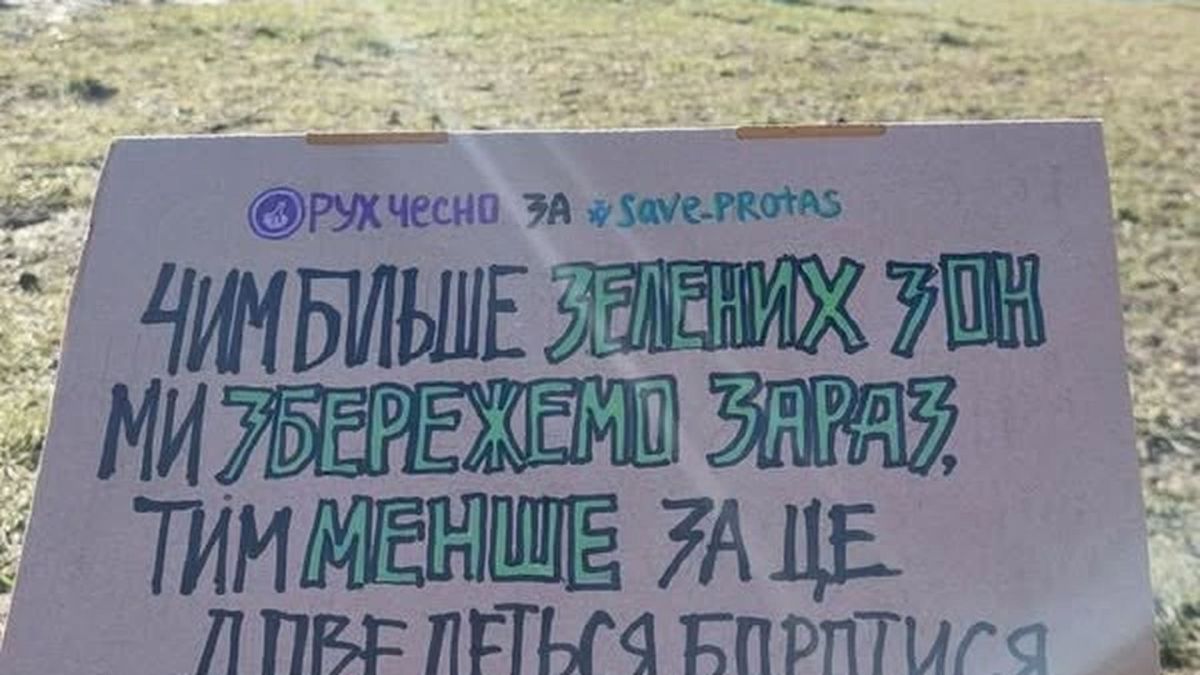 РУХ ЧЕСНО ЗА #SAVE_PROTAS
ЧИМ БІЛЬШЕ ЗЕЛЕНИХ ЗОН
МИ ЗБЕРЕЖЕМО ЗАРАЗ,
ТИМ МЕНШЕ ЗА ЦЕ
ДОВЕДЕТЬСЯ БОРОТИСЯ